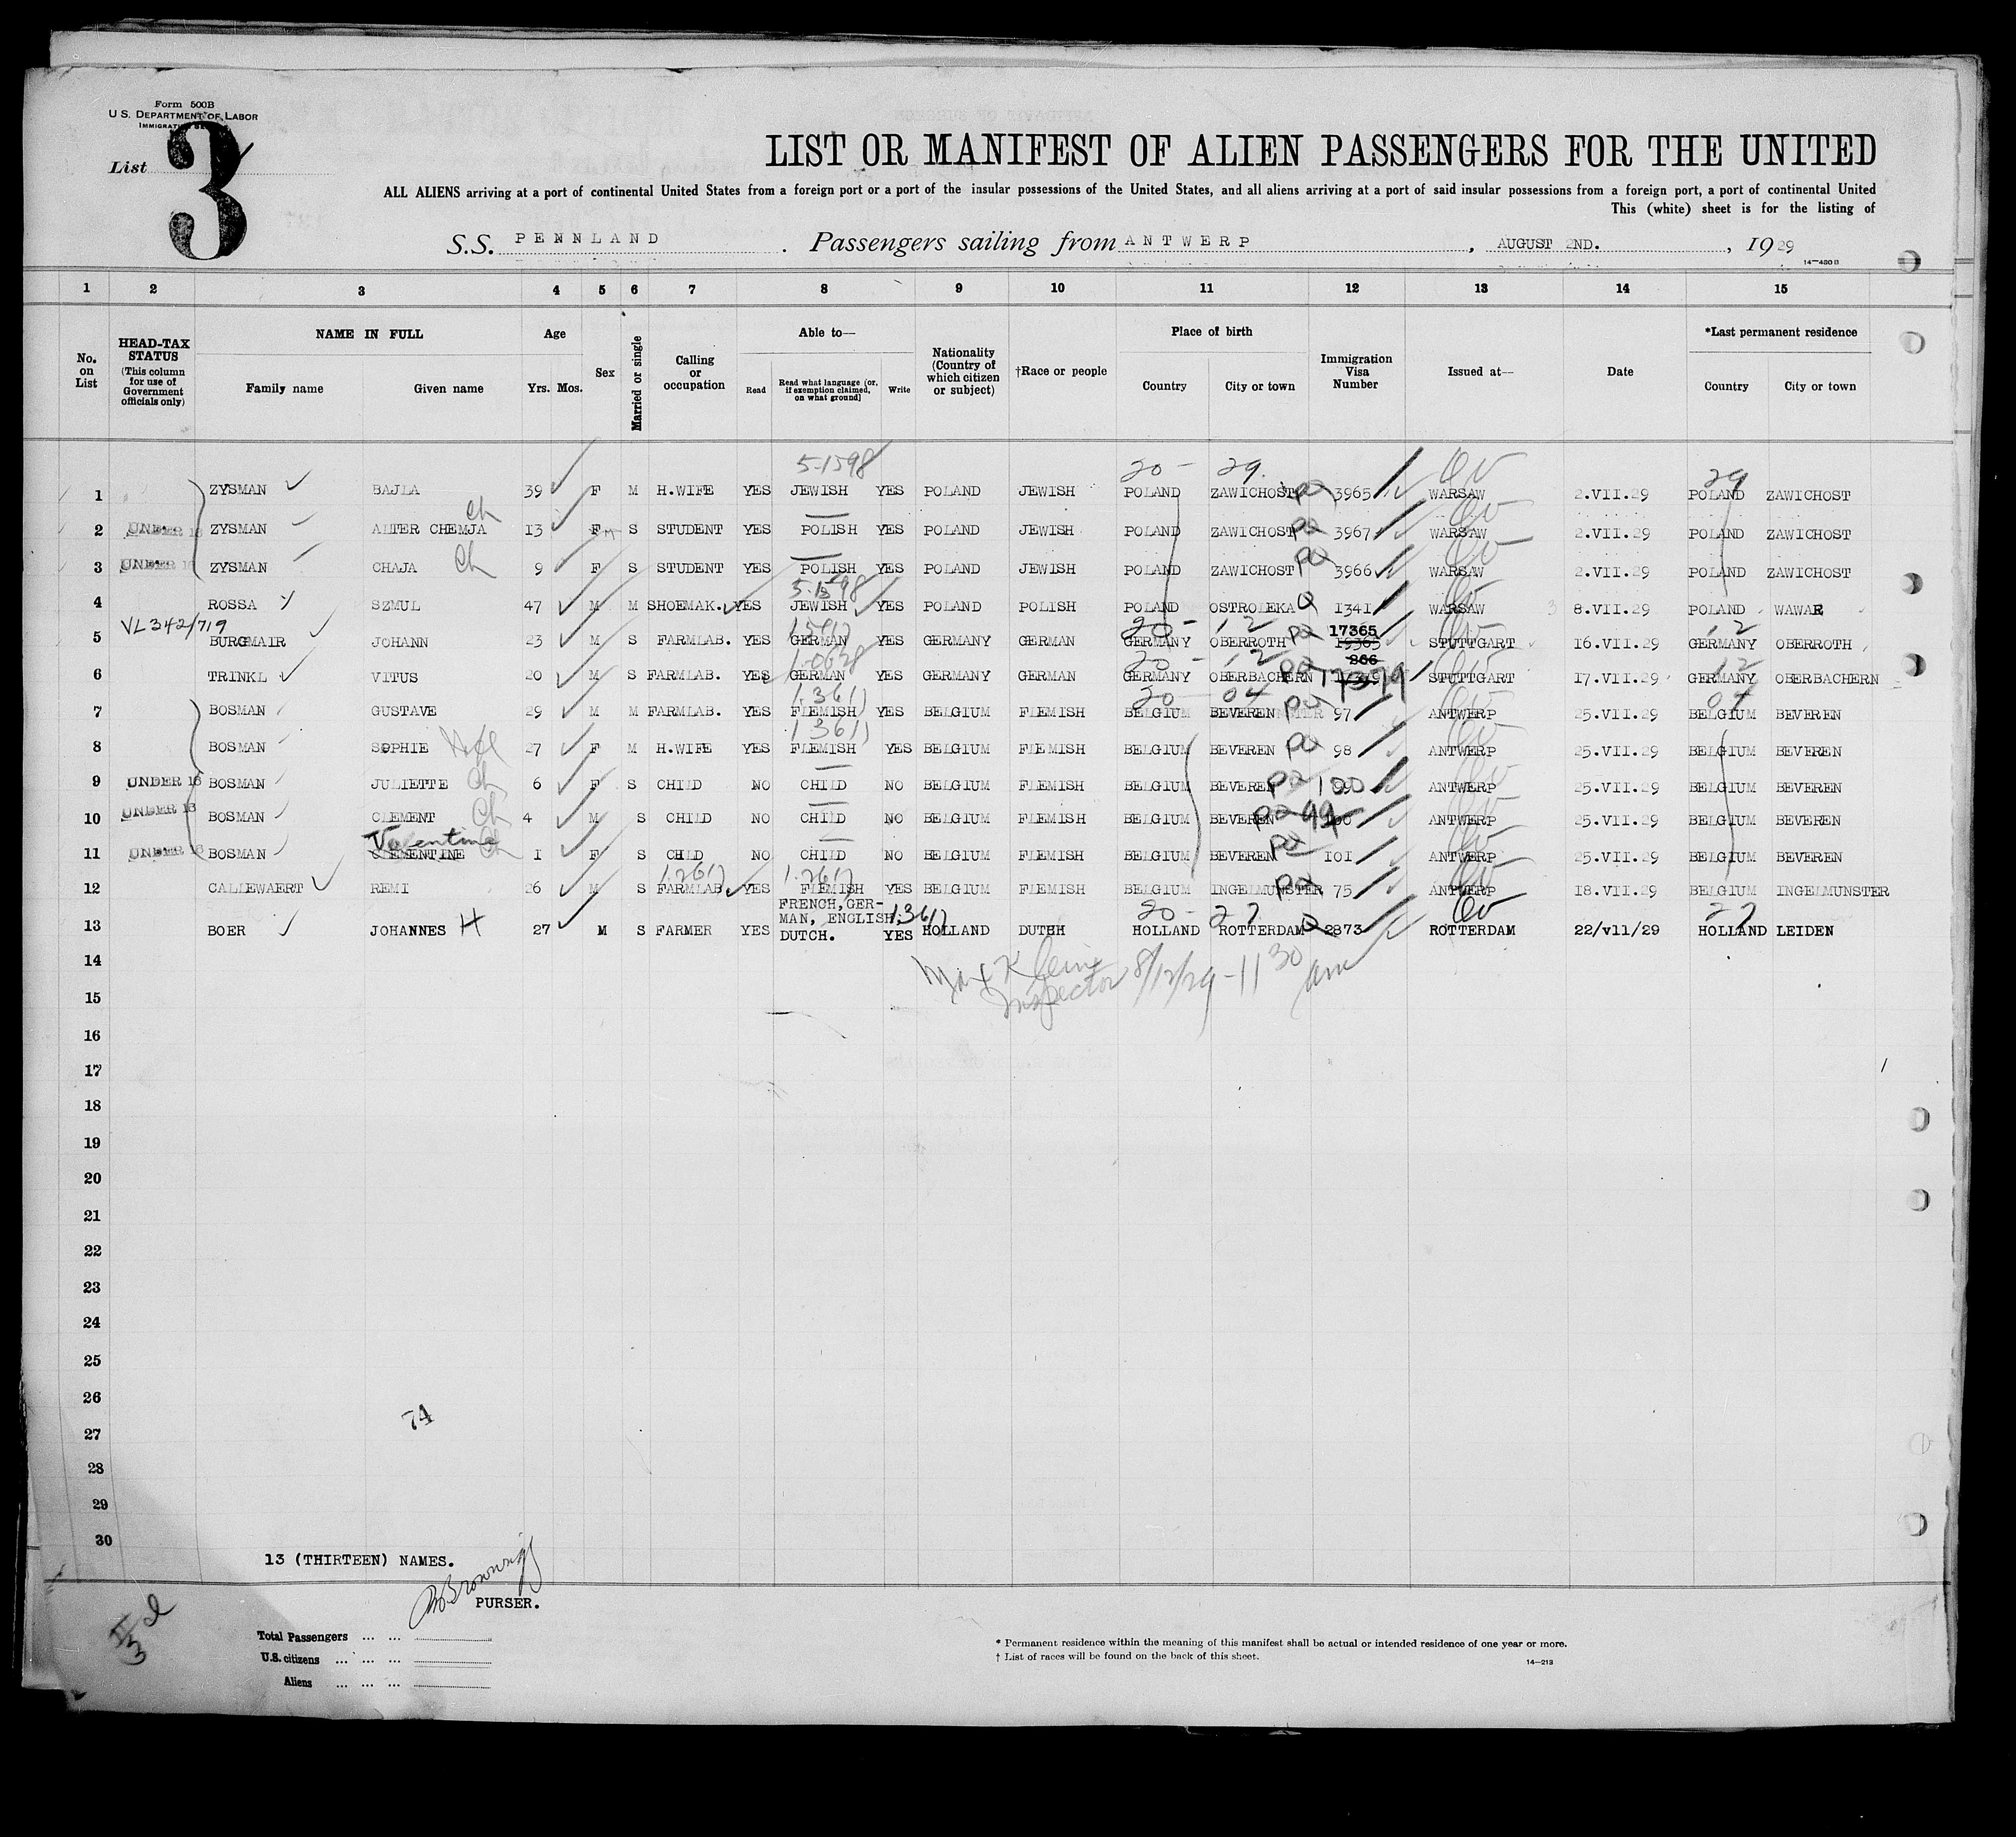 Form 500B
U. S. DEPARTMENT OF LABOR
List 3
LIST OR MANIFEST OF ALIEN PASSENGERS FOR THE UNITED
ALL ALIENS arriving at a port of continental United States from a foreign port or a port of the insular possessions of the United States, and all aliens arriving at a port of said insular possessions from a foreign port, a port of continental United
This (white) sheet is for the listing of
S.S. PENNLAND . Passengers sailing from ANTWERP , AUGUST 2ND. , 1929
14—480 B
1 2 3 4 5 6 7 8 9 10 11 12 13 14 15
No. on List
HEAD-TAX STATUS (This column for use of Government officials only)
NAME IN FULL
Family name Given name
Age
Yrs. Mos.
Sex
Married or single
Calling or occupation
Able to—
Read Read what language (or, if exemption claimed, on what ground) Write
Nationality (Country of which citizen or subject)
†Race or people
Place of birth
Country City or town
Immigration Visa Number
Issued at—
Date
*Last permanent residence
Country City or town
5-1598 20- 29. QV 29
1 ZYSMAN BAJLA 39 F M H.WIFE YES JEWISH YES POLAND JEWISH POLAND ZAWICHOST 3965 WARSAW 2.VII.29 POLAND ZAWICHOST
2 UNDER 16 ZYSMAN ALTER CHEMJA Ch 13 F M S STUDENT YES POLISH YES POLAND JEWISH POLAND ZAWICHOST 3967 WARSAW 2.VII.29 POLAND ZAWICHOST
3 UNDER 16 ZYSMAN CHAJA Ch 9 F S STUDENT YES POLISH YES POLAND JEWISH POLAND ZAWICHOST 3966 WARSAW 2.VII.29 POLAND ZAWICHOST
5-1598
4 ROSSA SZMUL 47 M M SHOEMAK. YES JEWISH YES POLAND POLISH POLAND OSTROLEKA 1341 WARSAW 8.VII.29 POLAND WAWAR
VL 342/719 20- 12 17365 12
5 BURGMAIR JOHANN 23 M S FARMLAB. YES GERMAN YES GERMANY GERMAN GERMANY OBERROTH 19365 STUTTGART 16.VII.29 GERMANY OBERROTH
20 - 12 266 12
6 TRINKL VITUS 20 M S FARMLAB. YES GERMAN YES GERMANY GERMAN GERMANY OBERBACHERN 17379 STUTTGART 17.VII.29 GERMANY OBERBACHERN
1.3611 20 04 04
7 BOSMAN GUSTAVE 29 M M FARMLAB. YES FLEMISH YES BELGIUM FLEMISH BELGIUM BEVEREN 97 ANTWERP 25.VII.29 BELGIUM BEVEREN
1 3611
8 BOSMAN SOPHIE 27 F M H.WIFE YES FLEMISH YES BELGIUM FLEMISH BELGIUM BEVEREN 98 ANTWERP 25.VII.29 BELGIUM BEVEREN
9 UNDER 16 BOSMAN JULIETTE Ch 6 F S CHILD NO CHILD NO BELGIUM FLEMISH BELGIUM BEVEREN 100 ANTWERP 25.VII.29 BELGIUM BEVEREN
10 UNDER 16 BOSMAN CLEMENT Ch 4 M S CHILD NO CHILD NO BELGIUM FLEMISH BELGIUM BEVEREN 99 ANTWERP 25.VII.29 BELGIUM BEVEREN
Valentine
11 UNDER 16 BOSMAN CLEMENTINE Ch 1 F S CHILD NO CHILD NO BELGIUM FLEMISH BELGIUM BEVEREN 101 ANTWERP 25.VII.29 BELGIUM BEVEREN
12 CALLEWAERT REMI 26 M S FARMLAB. YES FLEMISH YES BELGIUM FLEMISH BELGIUM INGELMUNSTER 75 ANTWERP 18.VII.29 BELGIUM INGELMUNSTER
FRENCH, GER-
MAN, ENGLISH. 20- 27 QV 27
13 BOER JOHANNES H 27 M S FARMER YES DUTCH. YES HOLLAND DUTCH HOLLAND ROTTERDAM 2873 ROTTERDAM 22/v11/29 HOLLAND LEIDEN
14 Max Klein 8/12/29 - 11 30 am
15 Inspector
16
17
18
19
20
21
22
23
24
25
26
74
27
28
29
30
13 (THIRTEEN) NAMES.
PURSER.
Total Passengers
U.S. citizens
Aliens
* Permanent residence within the meaning of this manifest shall be actual or intended residence of one year or more.
† List of races will be found on the back of this sheet.
14—213